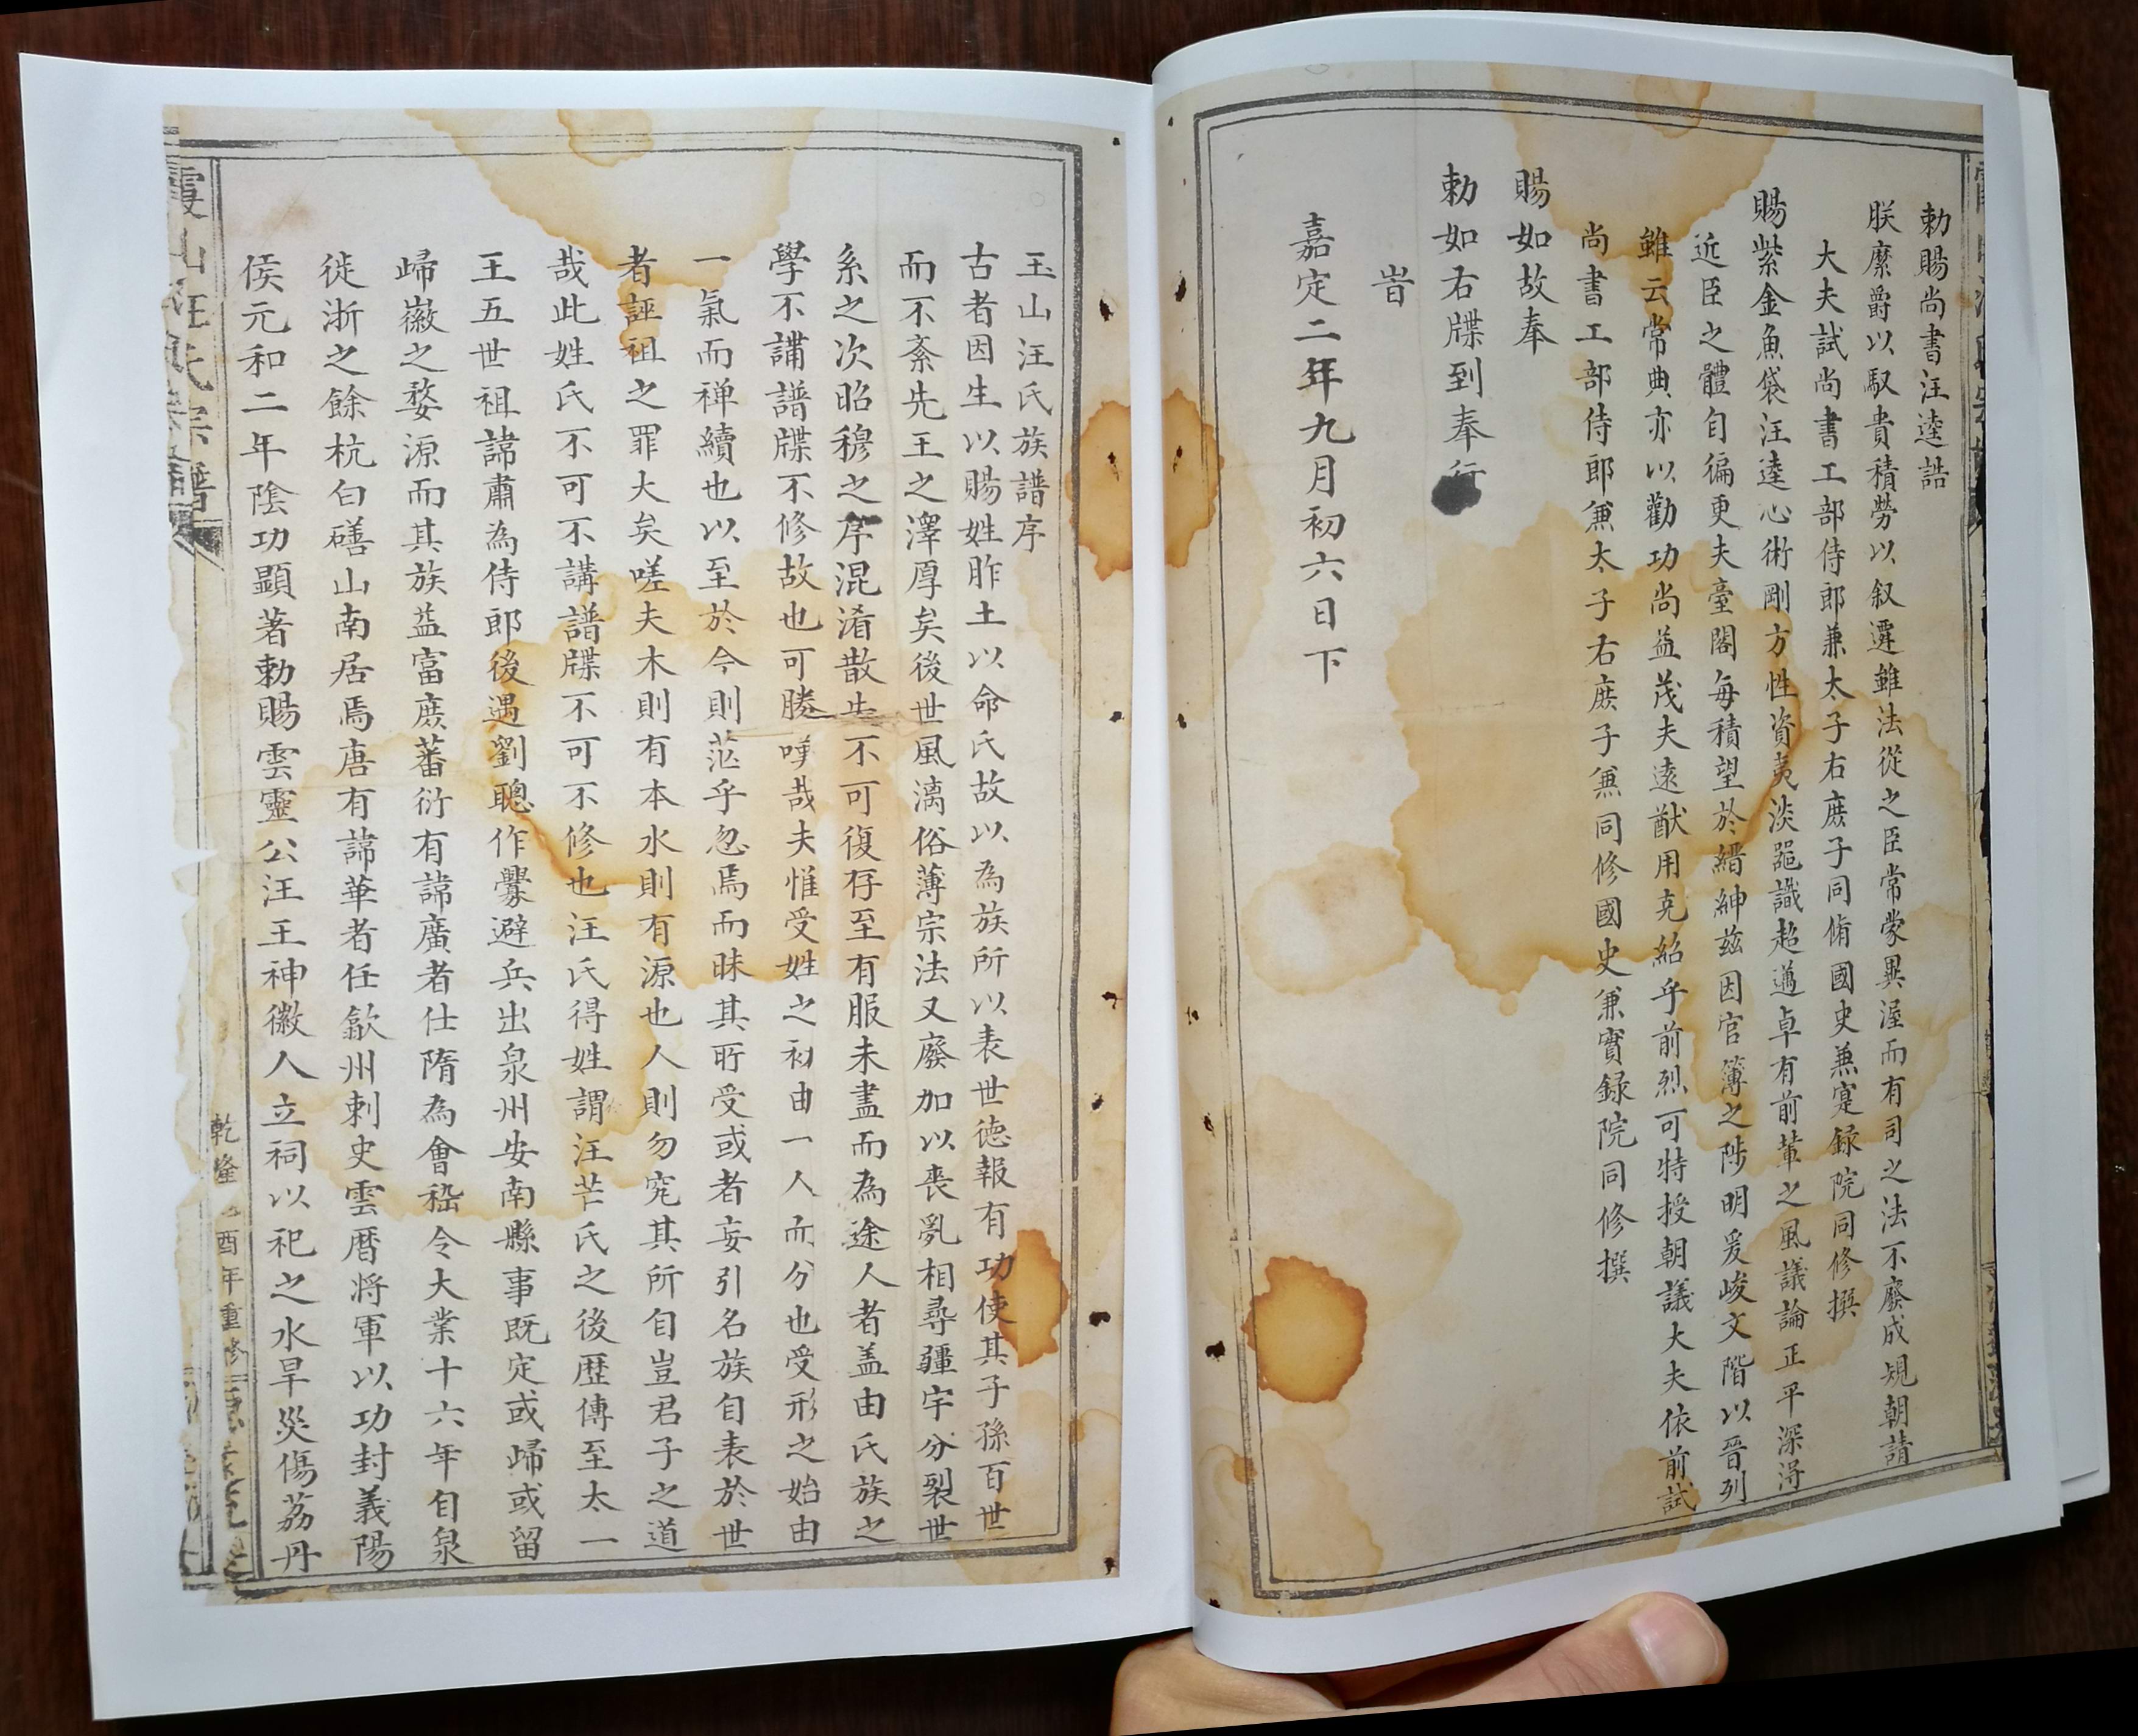 勅賜尚書汪逵誥
朕縻爵以馭貴積勞以叙遷雖法從之臣常蒙異渥而有司之法不廢成規朝請
大夫試尚書工部侍郎兼太子右庶子同脩國史兼寔録院同修撰
賜紫金魚袋汪逵心術剛方性資夷淡噐識超邁卓有前輩之風議論正平深淂
近臣之體自徧更夫臺閣每積望於縉紳兹因官簿之陟明爰峻文階以晋列
雖云常典亦以勸功尚益茂夫遠猷用克紹乎前烈可特授朝議大夫依前試
尚書工部侍郎兼太子右庶子兼同修國史兼實録院同修撰
賜如故奉
勅如右牒到奉行
旹
嘉定二年九月初六日下
玉山汪氏族譜序
古者因生以賜姓胙土以命氏故以為族所以表世德報有功使其子孫百世
而不紊先王之澤厚矣後世風漓俗薄宗法又廢加以喪亂相尋疆宇分裂世
系之次昭穆之序混淆散失不可復存至有服未盡而為途人者盖由氏族之
學不講譜牒不修故也可勝嘆哉夫惟受姓之初由一人而分也受形之始由
一氣而禅續也以至於今則茫乎忽焉而昧其所受或者妄引名族自表於世
者誣祖之罪大矣嗟夫木則有本水則有源也人則勿究其所自豈君子之道
哉此姓氏不可不講譜牒不可不修也汪氏得姓謂汪芒氏之後歷傳至太一
王五世祖諱肅為侍郎後遇劉聰作釁避兵出泉州安南縣事既定或歸或留
歸徽之婺源而其族益富庶蕃衍有諱廣者仕隋為會稽令大業十六年自泉
徙浙之餘杭白礄山南居焉唐有諱華者任歙州刺史雲暦將軍以功封義陽
侯元和二年陰功顯著勅賜雲靈公汪王神徽人立祠以祀之水旱災傷荔丹
霞山汪氏宗譜
乾隆 酉年重修